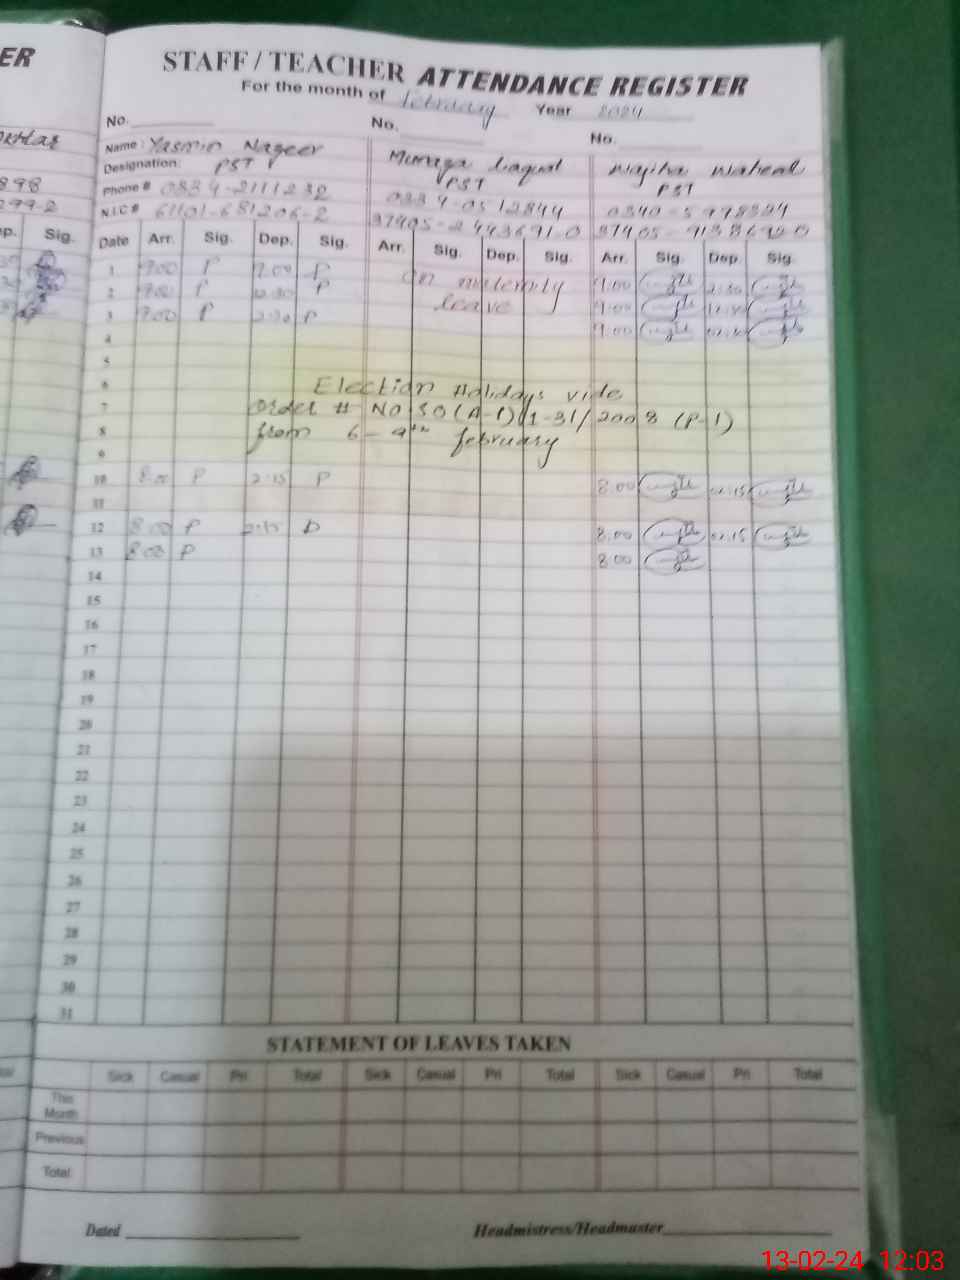 ER
STAFF / TEACHER ATTENDANCE REGISTER
For the month of february Year 2024
No. No. No.
Name: Yasmin Nazeer
Designation: PST PST PST
Phone # 0334-2111232 0334-0512844
898
N.I.C # 61101-681206-2 37405-2443691-0
299-2
p. Sig. Date Arr. Sig. Dep. Sig. Arr. Sig. Dep. Sig. Arr. Sig. Dep. Sig.
1 9.00 P P On maternity 9.00 2:30
2 9.00 P 12.30 P leave 9.00 12.30
3 9.00 P 2:30 P 9.00 02.30
4
5
6 Election Holidays vide
7 Order # NO SO(A-1)1-31/2008 (P-1)
8 from 6-9th february
9
10 8.00 P 2:15 P 8.00 02.15
11
12 8.00 P 2:15 P 8.00 02.15
13 8.00 P 8.00
14
15
16
17
18
19
20
21
22
23
24
25
26
27
28
29
30
31
STATEMENT OF LEAVES TAKEN
Sick Casual Pri Total Sick Casual Pri Total Sick Casual Pri Total
This
Month
Previous
Total
Dated Headmistress/Headmaster
13-02-24 12:03